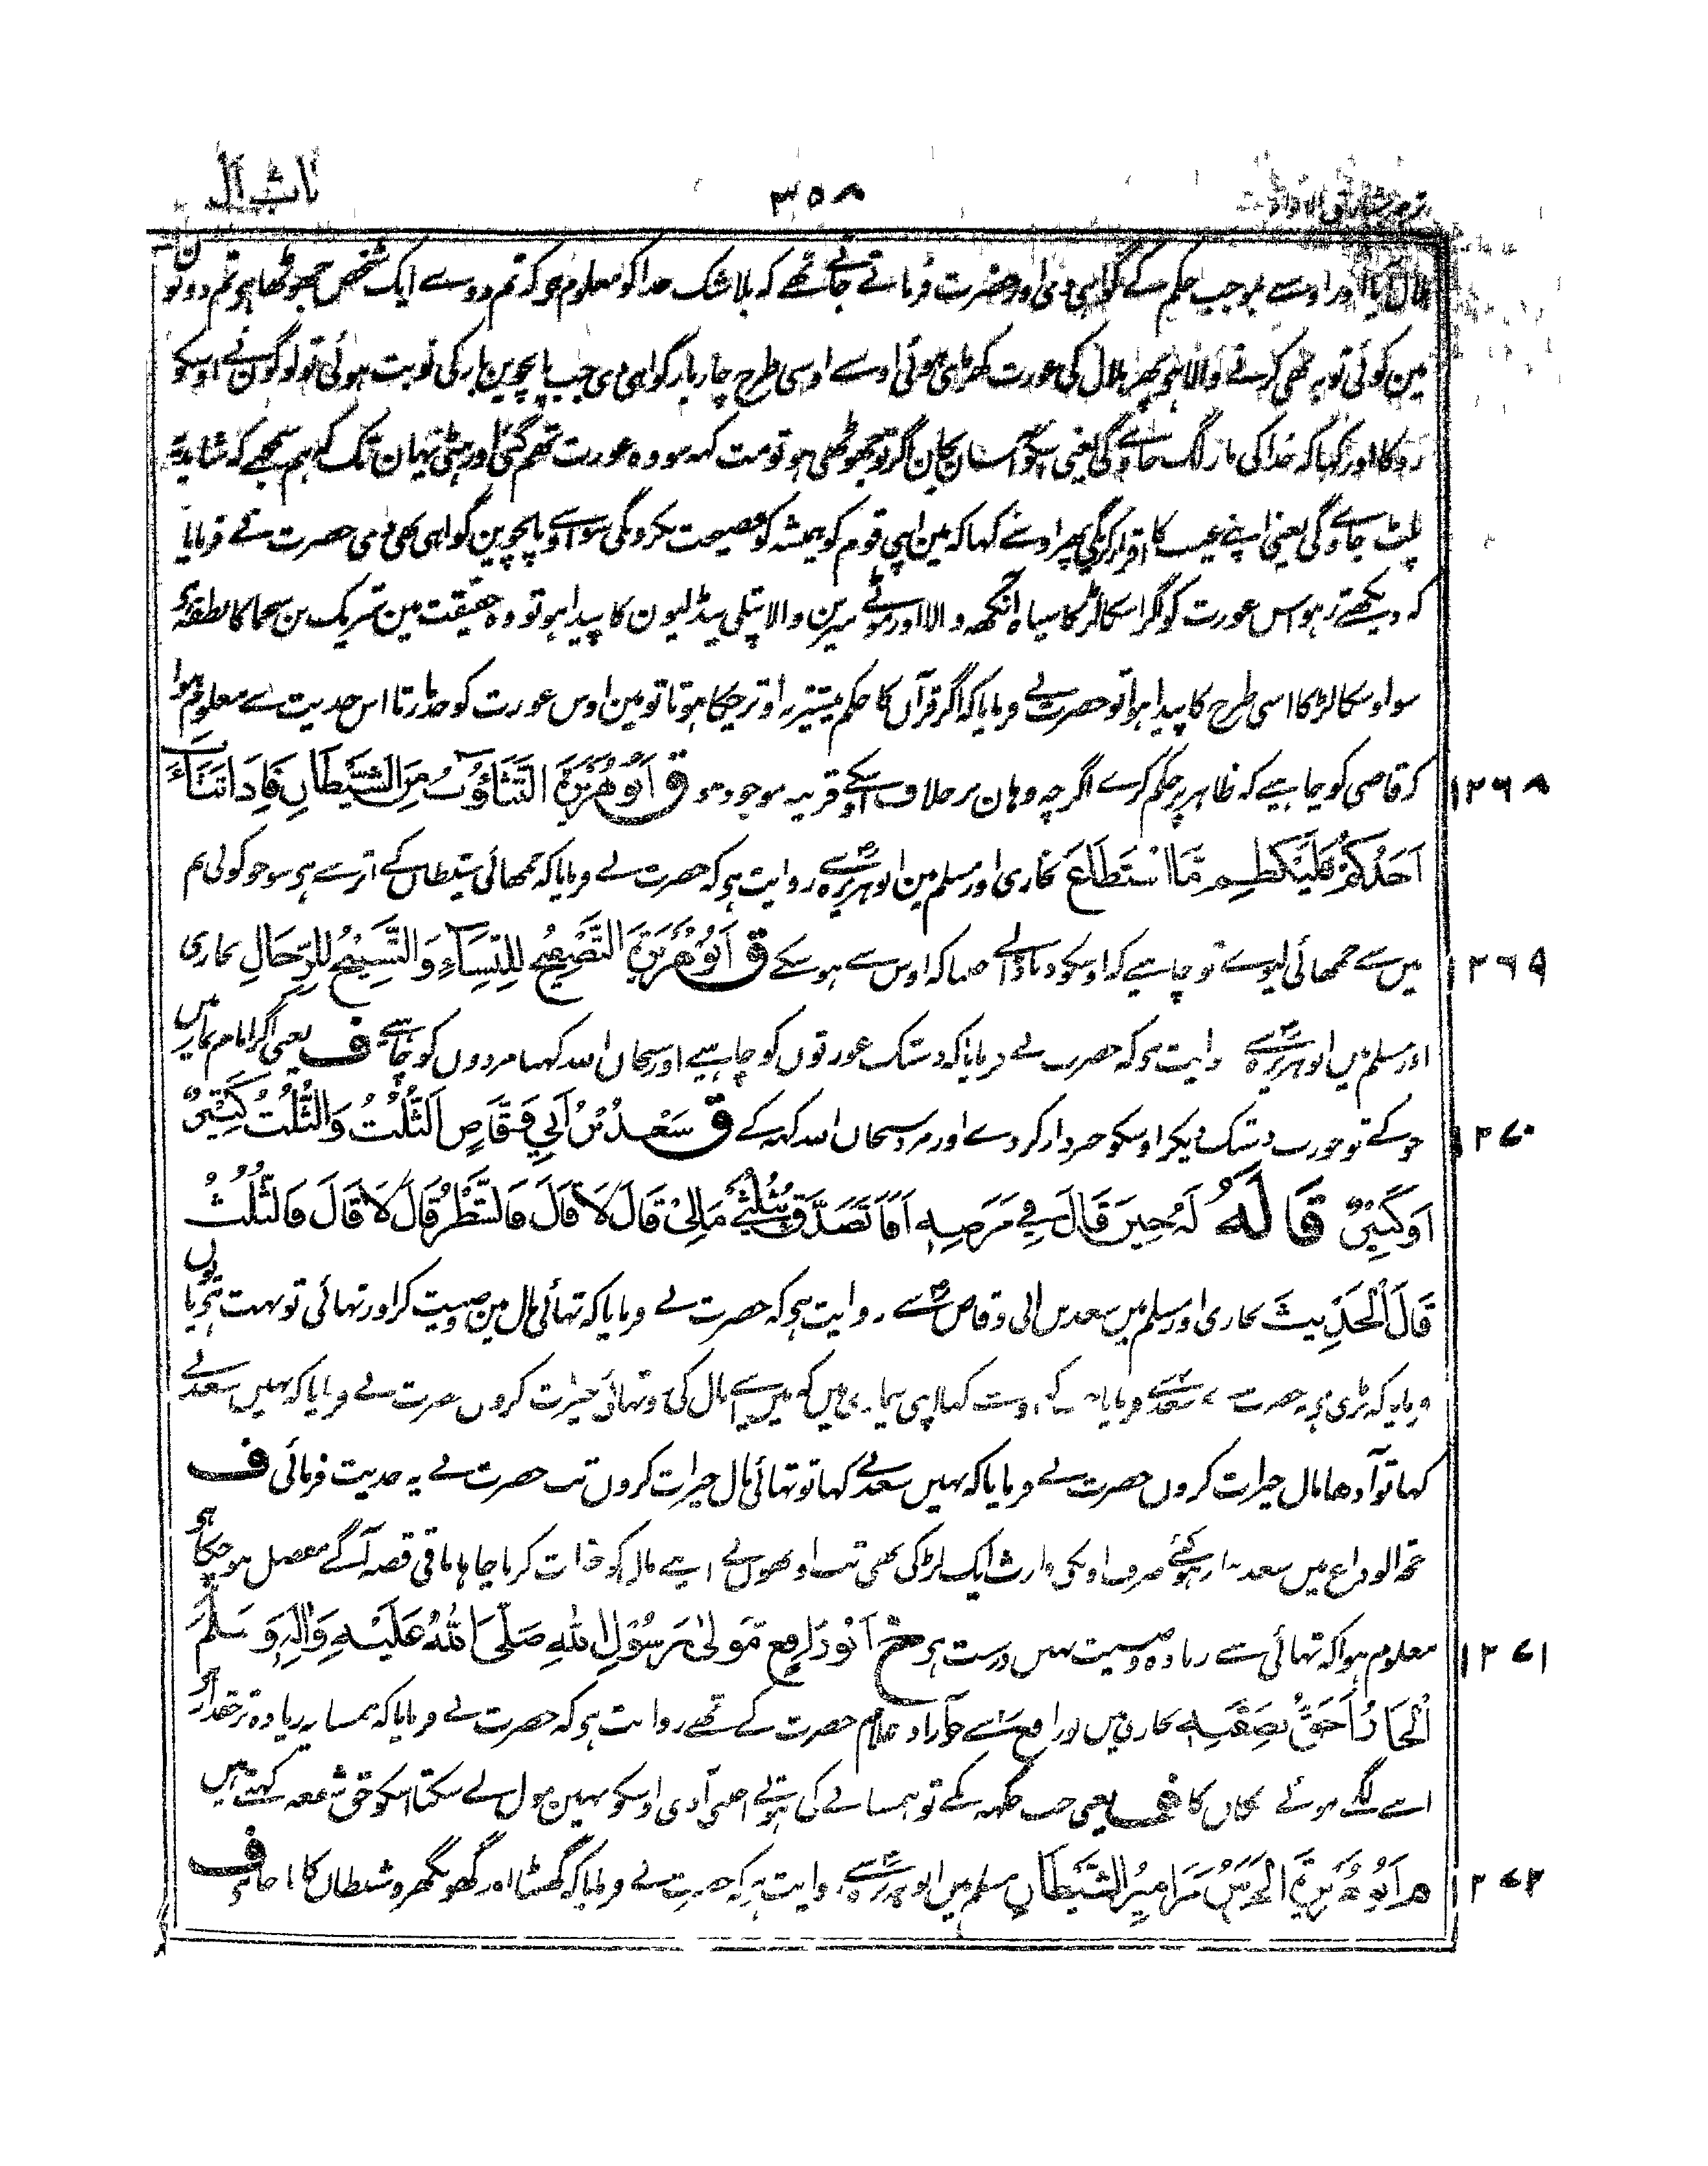 باب ال
۳۵۸
ہلال آیا اور اوسے بموجب حکم کے گواہی دی اور حضرت فرماتے جاتے تھے کہ بلا شک خدا کو معلوم ہو کہ تم دو سے ایک شخص جھوٹھا ہو تم دونون
مین کوئی توبہ بھی کرنے والا ہو پھر ہلال کی عورت کھڑی ہوئی اوسے اوسی طرح چار بار گواہی دی جب پانچوین بار کی نوبت ہوئی تو لوگون نے اوسکو
روکا اور کہا کہ خدا کی مار لگ جاوے گی یعنی اسکو آسان نجان اگر تو جھوٹھی ہو تو مت کہہ سو وہ عورت تھم گئی اور ہٹی یہان تک کہ ہم سمجھے کہ شاید
پلٹ جاوے گی یعنی اپنے عیب کا اقرار کریگی پھر اوسنے کہا کہ مین اپنی قوم کو ہمیشہ کو فضیحت نکرونگی سو اوسنے پانچوین گواہی بھی دی حضرت نے فرمایا
کہ دیکھتے رہو اس عورت کو اگر اسکا لڑکا سیاہ آنکھہ والا اور موٹے سرین والا پتلی پنڈلیون کا پیدا ہو تو وہ حقیقت مین شریک بن سحما کا نطفہ ہو
سو اوسکا لڑکا اسی طرح کا پیدا ہوا تو حضرت نے فرمایا کہ اگر قرآن کا حکم پیشتر نہ اوتر چکا ہوتا تو مین اوس عورت کو حد مارتا اس حدیث سے معلوم ہوا
کہ قاضی کو چاہیے کہ ظاہر پر حکم کرے اگرچہ وہان برخلاف اوسکے قرینہ موجود ہو ق اَبُو هُرَيْرَةَ اَلتَّثَاؤُبُ مِنَ الشَّيْطَانِ فَاِذَا تَثَاءَبَ ۱۲۶۸
اَحَدُكُمْ فَلْيَكْظِمْ مَا اسْتَطَاعَ بخاری اور مسلم مین ابو ہریرہ رض سے روایت ہو کہ حضرت نے فرمایا کہ جمھائی شیطان کے اثر سے ہو سو جو کوئی تم
مین سے جمھائی لیوے تو چاہیے کہ اوسکو دباوے جتنا کہ اوس سے ہو سکے ق اَبُو هُرَيْرَةَ اَلتَّصْفِيْحُ لِلنِّسَاءِ وَالتَّسْبِيْحُ لِلرِّجَالِ بخاری ۱۲۶۹
اور مسلم مین ابو ہریرہ رض سے روایت ہی کہ حضرت نے فرمایا کہ دستک عورتون کو چاہیے اور سبحان اللہ کہنا مردون کو چاہیے ف یعنی اگر امام نماز مین
چوکے تو عورت دستک دیکر اوسکو خبردار کر دے اور مرد سبحان اللہ کہہ کے ق سَعْدُ بْنُ اَبِي وَقَّاصٍ اَلثُّلُثُ وَالثُّلُثُ كَثِيْرٌ ۱۲۷۰
اَوْ كَبِيْرٌ قَالَهُ لَهُ حِيْنَ قَالَ فِي مَرَضِهِ اَفَاَتَصَدَّقُ بِثُلُثَيْ مَالِيْ قَالَ لَا قَالَ فَالشَّطْرُ قَالَ لَا قَالَ فَالثُّلُثُ
قَالَ الْحَدِيْثَ بخاری اور مسلم مین سعد بن ابی وقاص رض سے روایت ہو کہ حضرت نے فرمایا کہ تہائی مال مین وصیت کر اور تہائی تو بہت ہو یا یون
فرمایا کہ بڑی ہو یہ حضرت نے سعد سے فرمایا جب کہ اوسنے کہا اپنی بیماری مین کہ مین اپنے مال کی دو تہائی خیرات کرون حضرت نے فرمایا کہ نہین سعد نے
کہا تو آدھا مال خیرات کرون حضرت نے فرمایا کہ نہین سعد نے کہا تو تہائی مال خیرات کرون تب حضرت نے یہ حدیث فرمائی ف
حجۃ الوداع مین سعد بیمار ہو گئے صرف اونکی وارث ایک لڑکی تھی تب اونھون نے اپنے مال کو خیرات کرنا چاہا باقی قصہ آگے مفصل ہو چکا ہو
معلوم ہوا کہ تہائی سے زیادہ وصیت نہین درست ہی خ اَبُوْ رَافِعٍ مَوْلٰى رَسُوْلِ اللهِ صَلَّى اللهُ عَلَيْهِ وَاٰلِهِ وَسَلَّمَ ۱۲۷۱
اَلْجَارُ اَحَقُّ بِصَقَبِهِ بخاری مین ابو رافع رض سے جو آزاد غلام حضرت کے تھے روایت ہو کہ حضرت نے فرمایا کہ ہمسایہ زیادہ تر حقدار ہو
اپنے لگے ہوئے مکان کا ف یعنی جب مکان بکے تو ہمسائے کی ہوتے اجنبی آدمی اوسکو نہین مول لے سکتا اسکو حق شفعہ کہتے ہین
م اَبُوْ هُرَيْرَةَ اَلْجَرَسُ مَزَامِيْرُ الشَّيْطَانِ مسلم مین ابو ہریرہ رض سے روایت ہے کہ حضرت نے فرمایا کہ گھنٹا اور گھونگھرو شیطان کا باجا ہو ف ۱۲۷۲